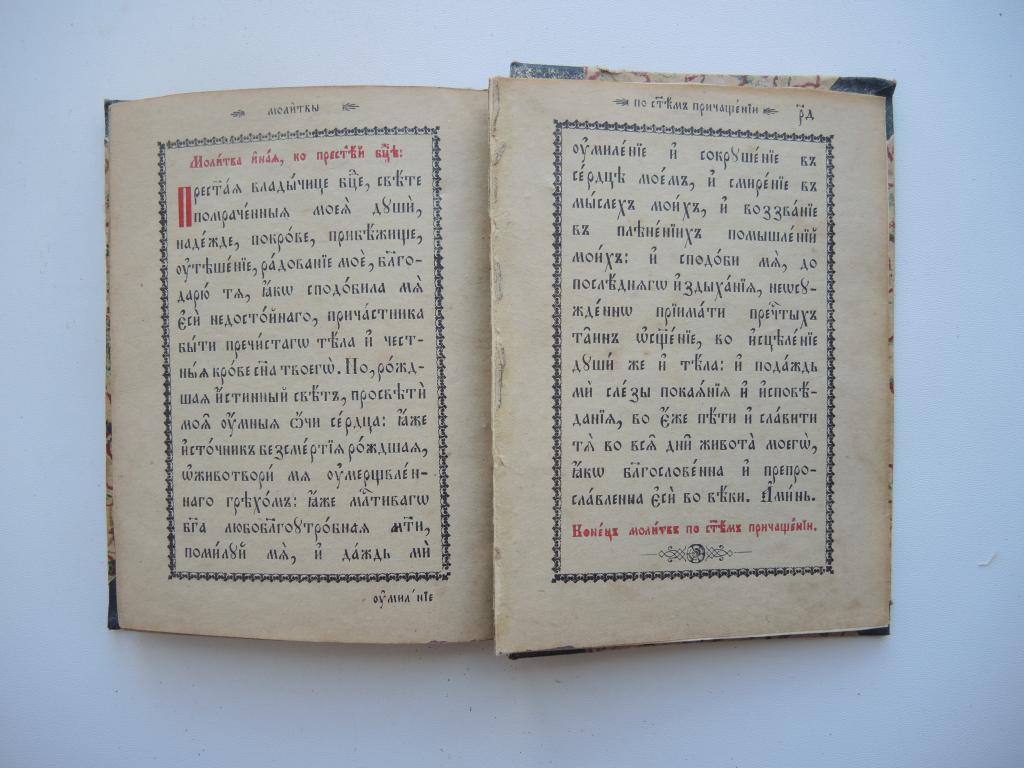 моли́твы
Моли́тва и҆на́я, ко прест҃ѣ́й бц҃ѣ:
Прест҃а́я влады́чице бц҃е, свѣ́те
помраче́нныѧ моеѧ̀ дꙋшѝ,
наде́жде, покро́ве, прибѣ́жище,
оу҆тѣше́нїе, ра́дованїе моѐ, благо-
дарю́ тѧ, ꙗ҆́кѡ сподо́била мѧ̀
є҆сѝ недосто́йнаго, прича́стника
бы́ти пречи́стагѡ тѣ́ла и҆ чест-
ны́ѧ кро́ве сн҃а твоегѡ̀. Но, ро́жд-
шаѧ и҆́стинный свѣ́тъ, просвѣтѝ
моѧ̑ оу҆́мныѧ ѻ҆́чи се́рдца: ꙗ҆́же
и҆сто́чникъ безсме́ртїѧ ро́ждшаѧ,
ѡ҆животворѝ мѧ оу҆мерщвле́н-
наго грѣхо́мъ: ꙗ҆́же мл҃тивагѡ
бг҃а любобл҃гоꙋтро́бнаѧ мт҃и,
поми́лꙋй мѧ̀, и҆ да́ждь мѝ
оу҆миле́нїе
по ст҃ѣ́мъ причаще́нїи
р҃д
оу҆миле́нїе и҆ сокрꙋше́нїе въ
се́рдцѣ мое́мъ, и҆ смире́нїе въ
мы́слехъ мои́хъ, и҆ воззва́нїе
въ плѣне́нїихъ помышле́нїй
мои́хъ: и҆ сподо́би мѧ̀, до
послѣ́днѧгѡ и҆здыха́нїѧ, неѡсꙋ-
жде́ннѡ прїима́ти пречⷭ҇тыхъ
та̑инъ ѡ҆сщ҃е́нїе, во и҆сцѣле́нїе
дꙋшѝ же и҆ тѣ́ла: и҆ пода́ждь
мѝ сле́зы покаѧ́нїѧ и҆ и҆сповѣ́-
данїѧ, во є҆́же пѣ́ти и҆ сла́вити
тѧ̀ во всѧ̑ дни҄ живота̀ моегѡ̀,
ꙗ҆́кѡ бл҃гослове́нна и҆ препро-
сла́вленна є҆сѝ во вѣ́ки. А҆ми́нь.
Коне́цъ моли́твъ по ст҃ѣ́мъ причаще́нїи.